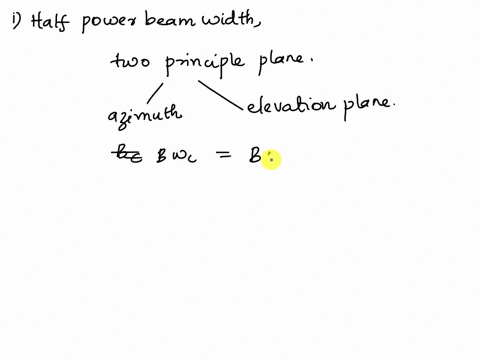 i) Half power beam width,
two principle plane.
azimuth elevation plane.
B wc = B